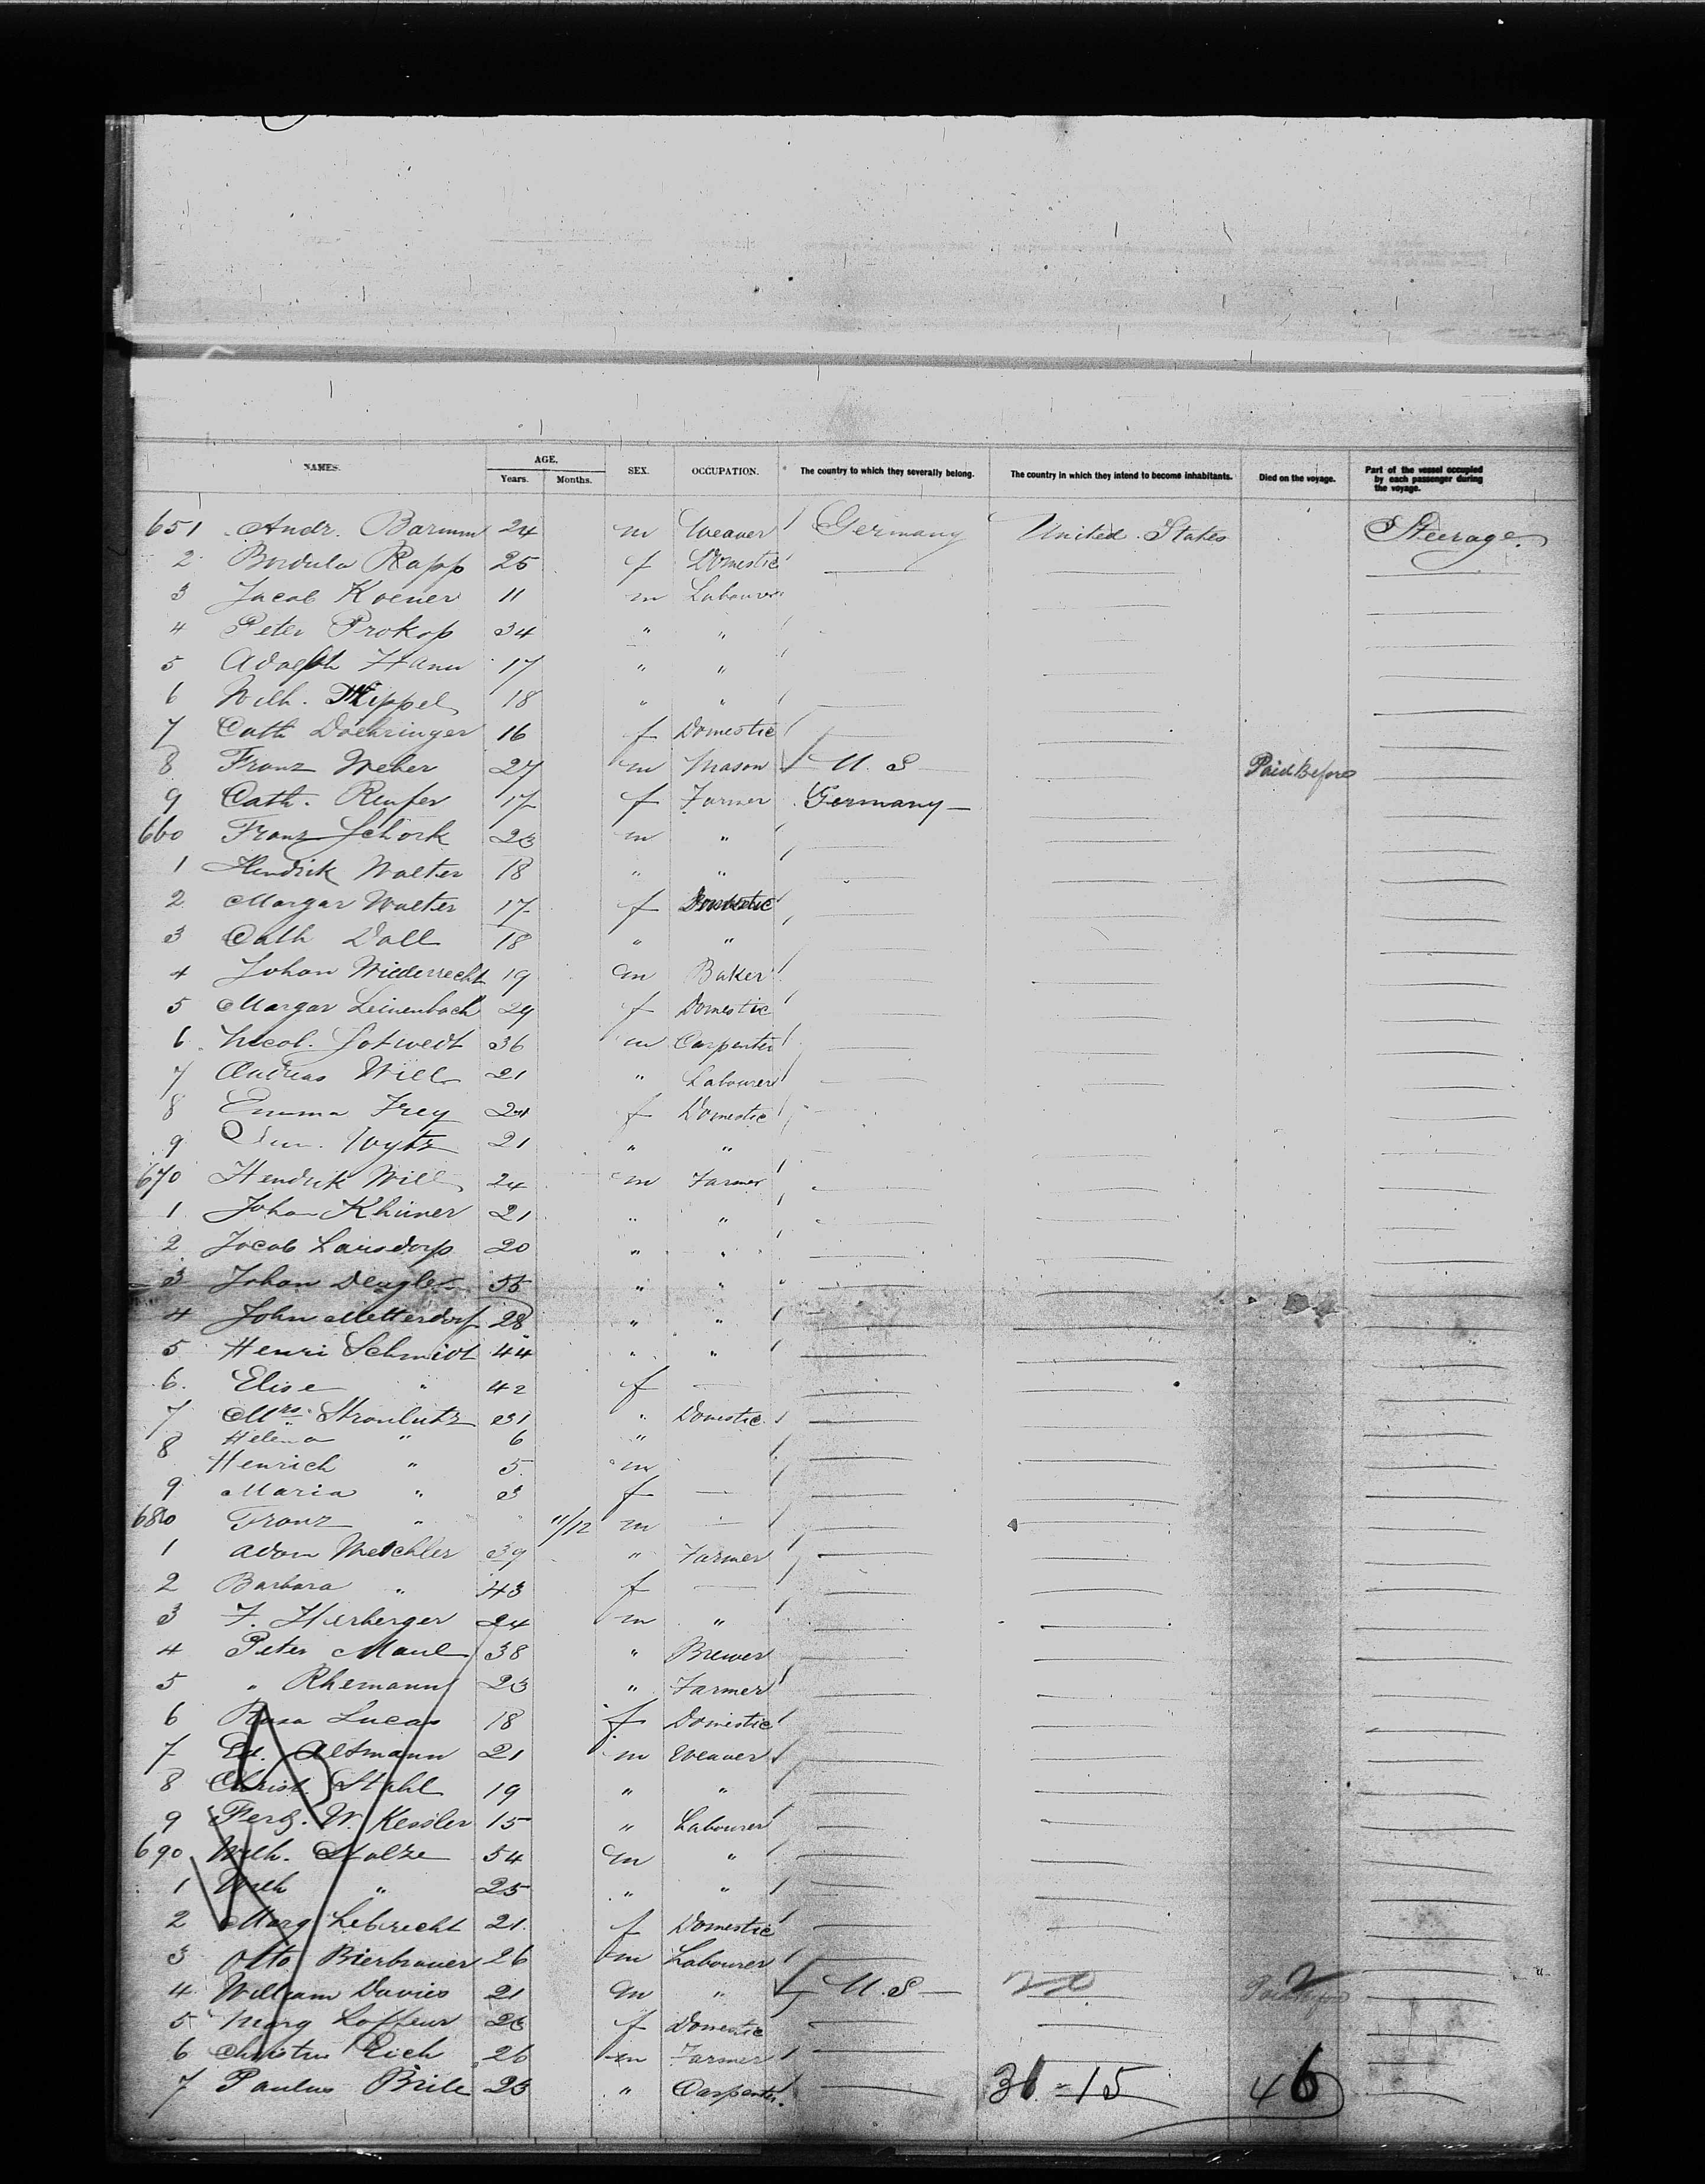 NAMES. AGE. Years. Months. SEX. OCCUPATION. The country to which they severally belong. The country in which they intend to become inhabitants. Died on the voyage. Part of the vessel occupied by each passenger during the voyage.
651 Andr. Barmm 24 m Weaver Germany United States Steerage.
2 Bordula Rapp 25 f Domestic
3 Jacob Koener 11 m Labourer
4 Peter Prokop 34 " "
5 Adolph Hann 17 " "
6 Wilh. Hippel 18 " "
7 Cath Doehringer 16 f Domestic
8 Franz Weber 27 m Mason U.S Paid Before
9 Cath. Renfer 17 f Farmer Germany
660 Franz Schork 23 m "
1 Hendrik Walter 18 " "
2 Margar Walter 17 f Domestic
3 Cath Doll 18 " "
4 Johan Wiederrecht 19 m Baker
5 Margar Leinenbach 29 f Domestic
6 Nicol. 36 m Carpenter
7 Andreas Will 21 " Labourer
8 Emma Frey 21 f Domestic
9 21 " "
670 Hendrik Will 24 m Farmer
1 Johan Khüner 21 " "
2 Jacob Lausdorp 20 " "
3 Johan Dengler 55 " "
4 John Metterdorf 28 " "
5 Henri Schmidt 44 " "
6. Elise " 42 f
7 Mrs. Stroulutz 31 " Domestic
8 Helena " 6 "
Henrich " 5 m
9 Maria " 3 f
680 Franz " 11/12 m
1 Adam Metchler 39 " Farmer
2 Barbara " 43 f
3 F. Herberger 24 m "
4 Peter Maul 38 " Brewer
5 " Rhemann 23 " Farmer
6 Rosa Lucas 18 f Domestic
7 Ed. Altmann 21 m Weaver
8 Christ. Stahl 19 " "
9 Ferd. W. Kessler 15 " Labourer
690 Wilh. Stolze 54 m "
1 Wilh " 25 " "
2 Marg Lebrecht 21 f Domestic
3 Otto Bierbrauer 26 m Labourer
4 William Davies 21 m " U.S 20 2
5 Marg Loffeur 23 f Domestic
6 Christus Eich 26 m Farmer
7 Paulus Brile 23 " Carpenter. 31 = 15 46